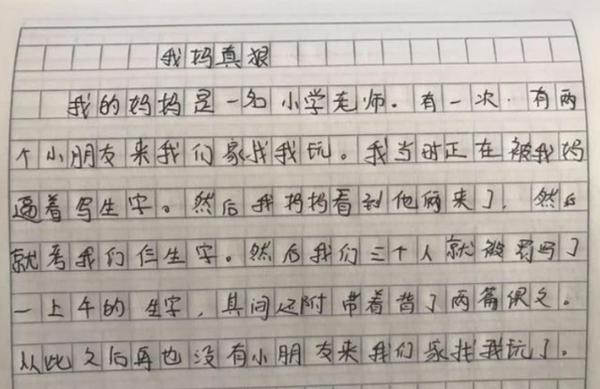 我妈真狠
我的妈妈是一名小学老师．有一次．有两
个小朋友来我们家找我玩。我当时正在被我妈
逼着写生字。然后我妈妈看到他俩来了．然后
就考我们仨生字。然后我们三个人就被罚写了
一上午的生字，其间还附带着背了两篇课文。
从此之后再也没有小朋友来我们家找我玩了。